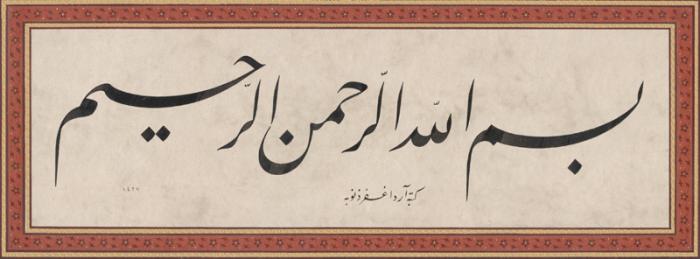 بسم الله الرحمن الرحيم
كتبه آردا غفر ذنوبه
١٤٢٧